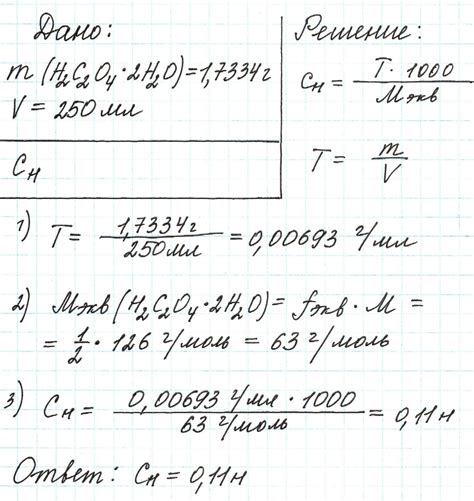 Дано:
m (H₂C₂O₄·2H₂O)=1,7334г
V = 250 мл
Cн
Решение:
Cн = T · 1000 / Mэкв
T = m / V
1) T = 1,7334г / 250мл = 0,00693 г/мл
2) Mэкв (H₂C₂O₄·2H₂O)= fэкв · M =
= 1/2 · 126 г/моль = 63 г/моль
3) Cн = 0,00693 г/мл · 1000 / 63 г/моль = 0,11н
Ответ: Cн = 0,11н